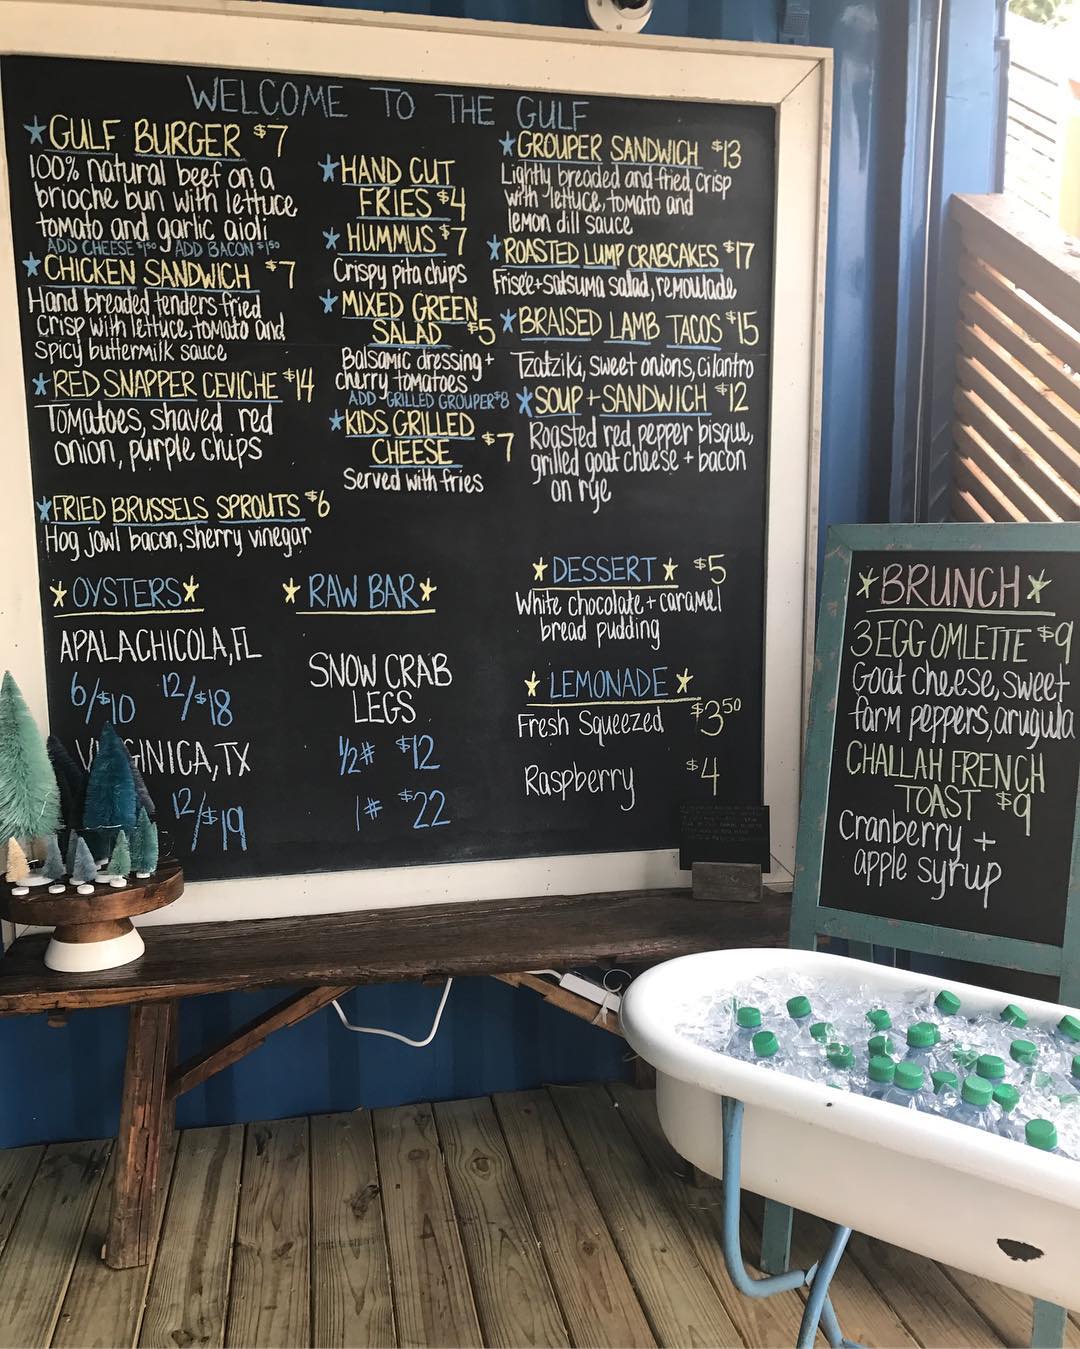 WELCOME TO THE GULF
GULF BURGER $7
100% natural beef on a
brioche bun with lettuce,
tomato and garlic aioli
ADD CHEESE $1.50 ADD BACON $1.50
CHICKEN SANDWICH $7
Hand breaded tenders fried
crisp with lettuce, tomato and
spicy buttermilk sauce
RED SNAPPER CEVICHE $14
Tomatoes, shaved red
onion, purple chips
FRIED BRUSSELS SPROUTS $6
Hog jowl bacon, sherry vinegar
HAND CUT
FRIES $4
HUMMUS $7
Crispy pita chips
MIXED GREEN
SALAD $5
Balsamic dressing +
cherry tomatoes
ADD GRILLED GROUPER $8
KIDS GRILLED
CHEESE $7
Served with fries
GROUPER SANDWICH $13
Lightly breaded and fried, crisp
with lettuce, tomato and
lemon dill sauce
ROASTED LUMP CRABCAKES $17
Friseé + satsuma salad, remoulade
BRAISED LAMB TACOS $15
Tzatziki, sweet onions, cilantro
SOUP + SANDWICH $12
Roasted red pepper bisque,
grilled goat cheese + bacon
on rye
OYSTERS
APALACHICOLA, FL
6/$10 12/$18
GINICA, TX
12/$19
RAW BAR
SNOW CRAB
LEGS
1/2# $12
1# $22
DESSERT $5
White chocolate + caramel
bread pudding
LEMONADE
Fresh Squeezed $3.50
Raspberry $4
BRUNCH
3 EGG OMLETTE $9
Goat cheese, sweet
farm peppers, arugula
CHALLAH FRENCH
TOAST $9
Cranberry +
apple syrup